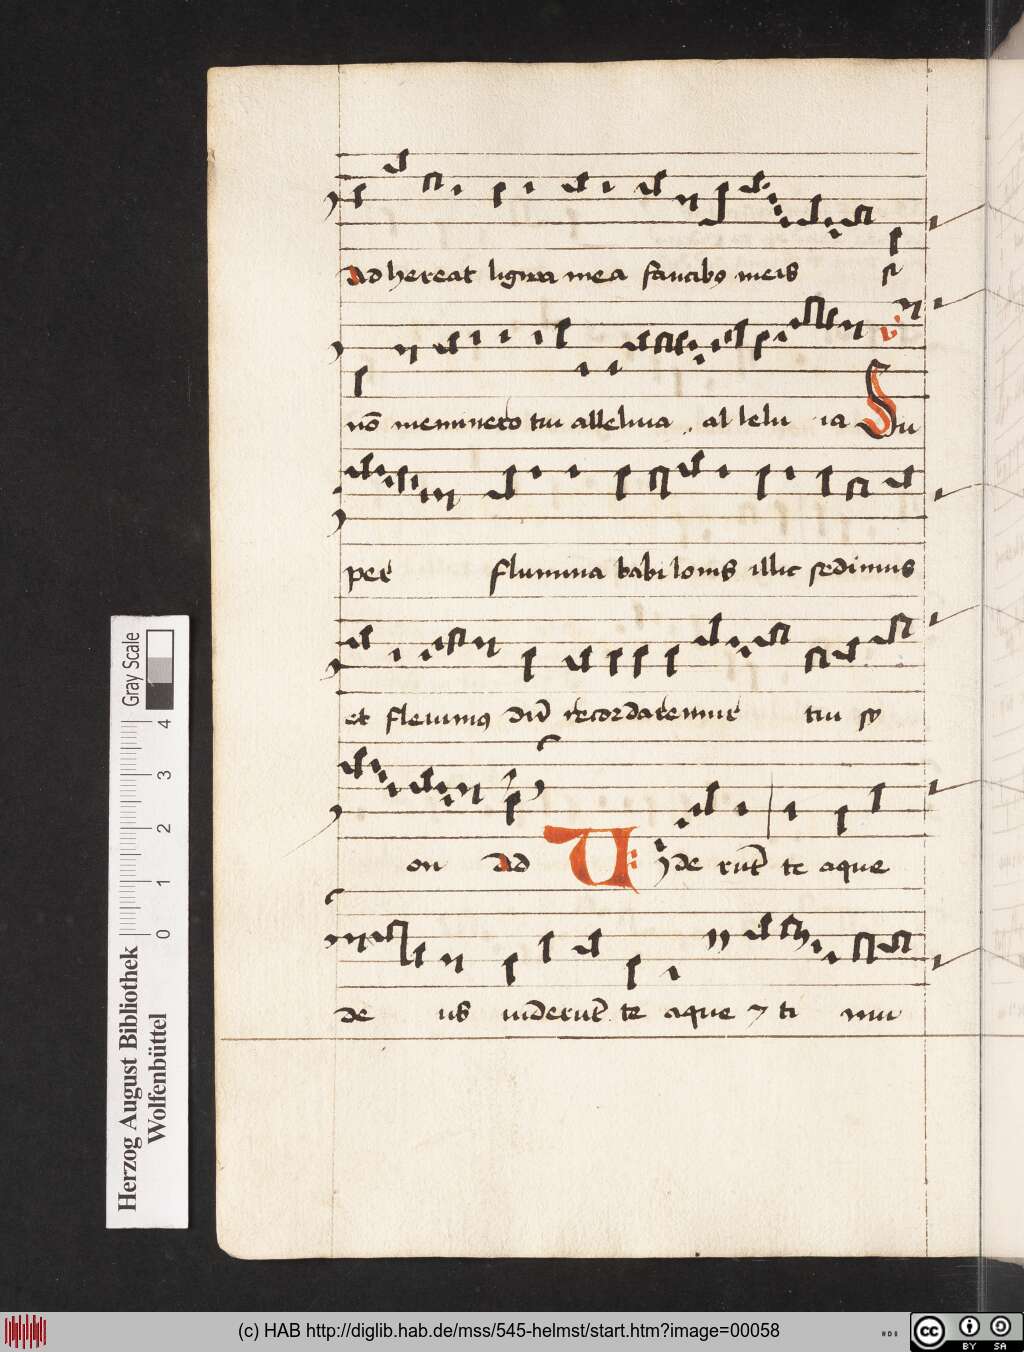 Adhereat ligwa mea faucibo meis si
nō meminero tui alleluia . al lelu ia Su
per flumina babi lonis illic sedimus
et fleuimꝯ dū recordaremur tui sy
on Ad Uyde rūt te aque
de us uiderūt te aque ⁊ ti mu
Gray Scale
0 1 2 3 4
Herzog August Bibliothek
Wolfenbüttel
(c) HAB http://diglib.hab.de/mss/545-helmst/start.htm?image=00058
cc BY SA